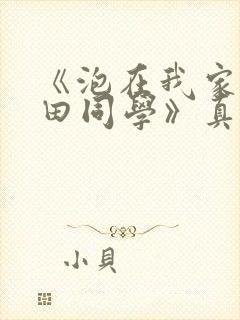 《泡在我家
田同學》真
小貝